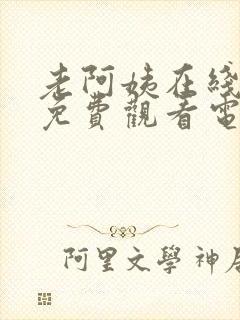 老阿姨在线
免費觀看電
阿里文學 神居